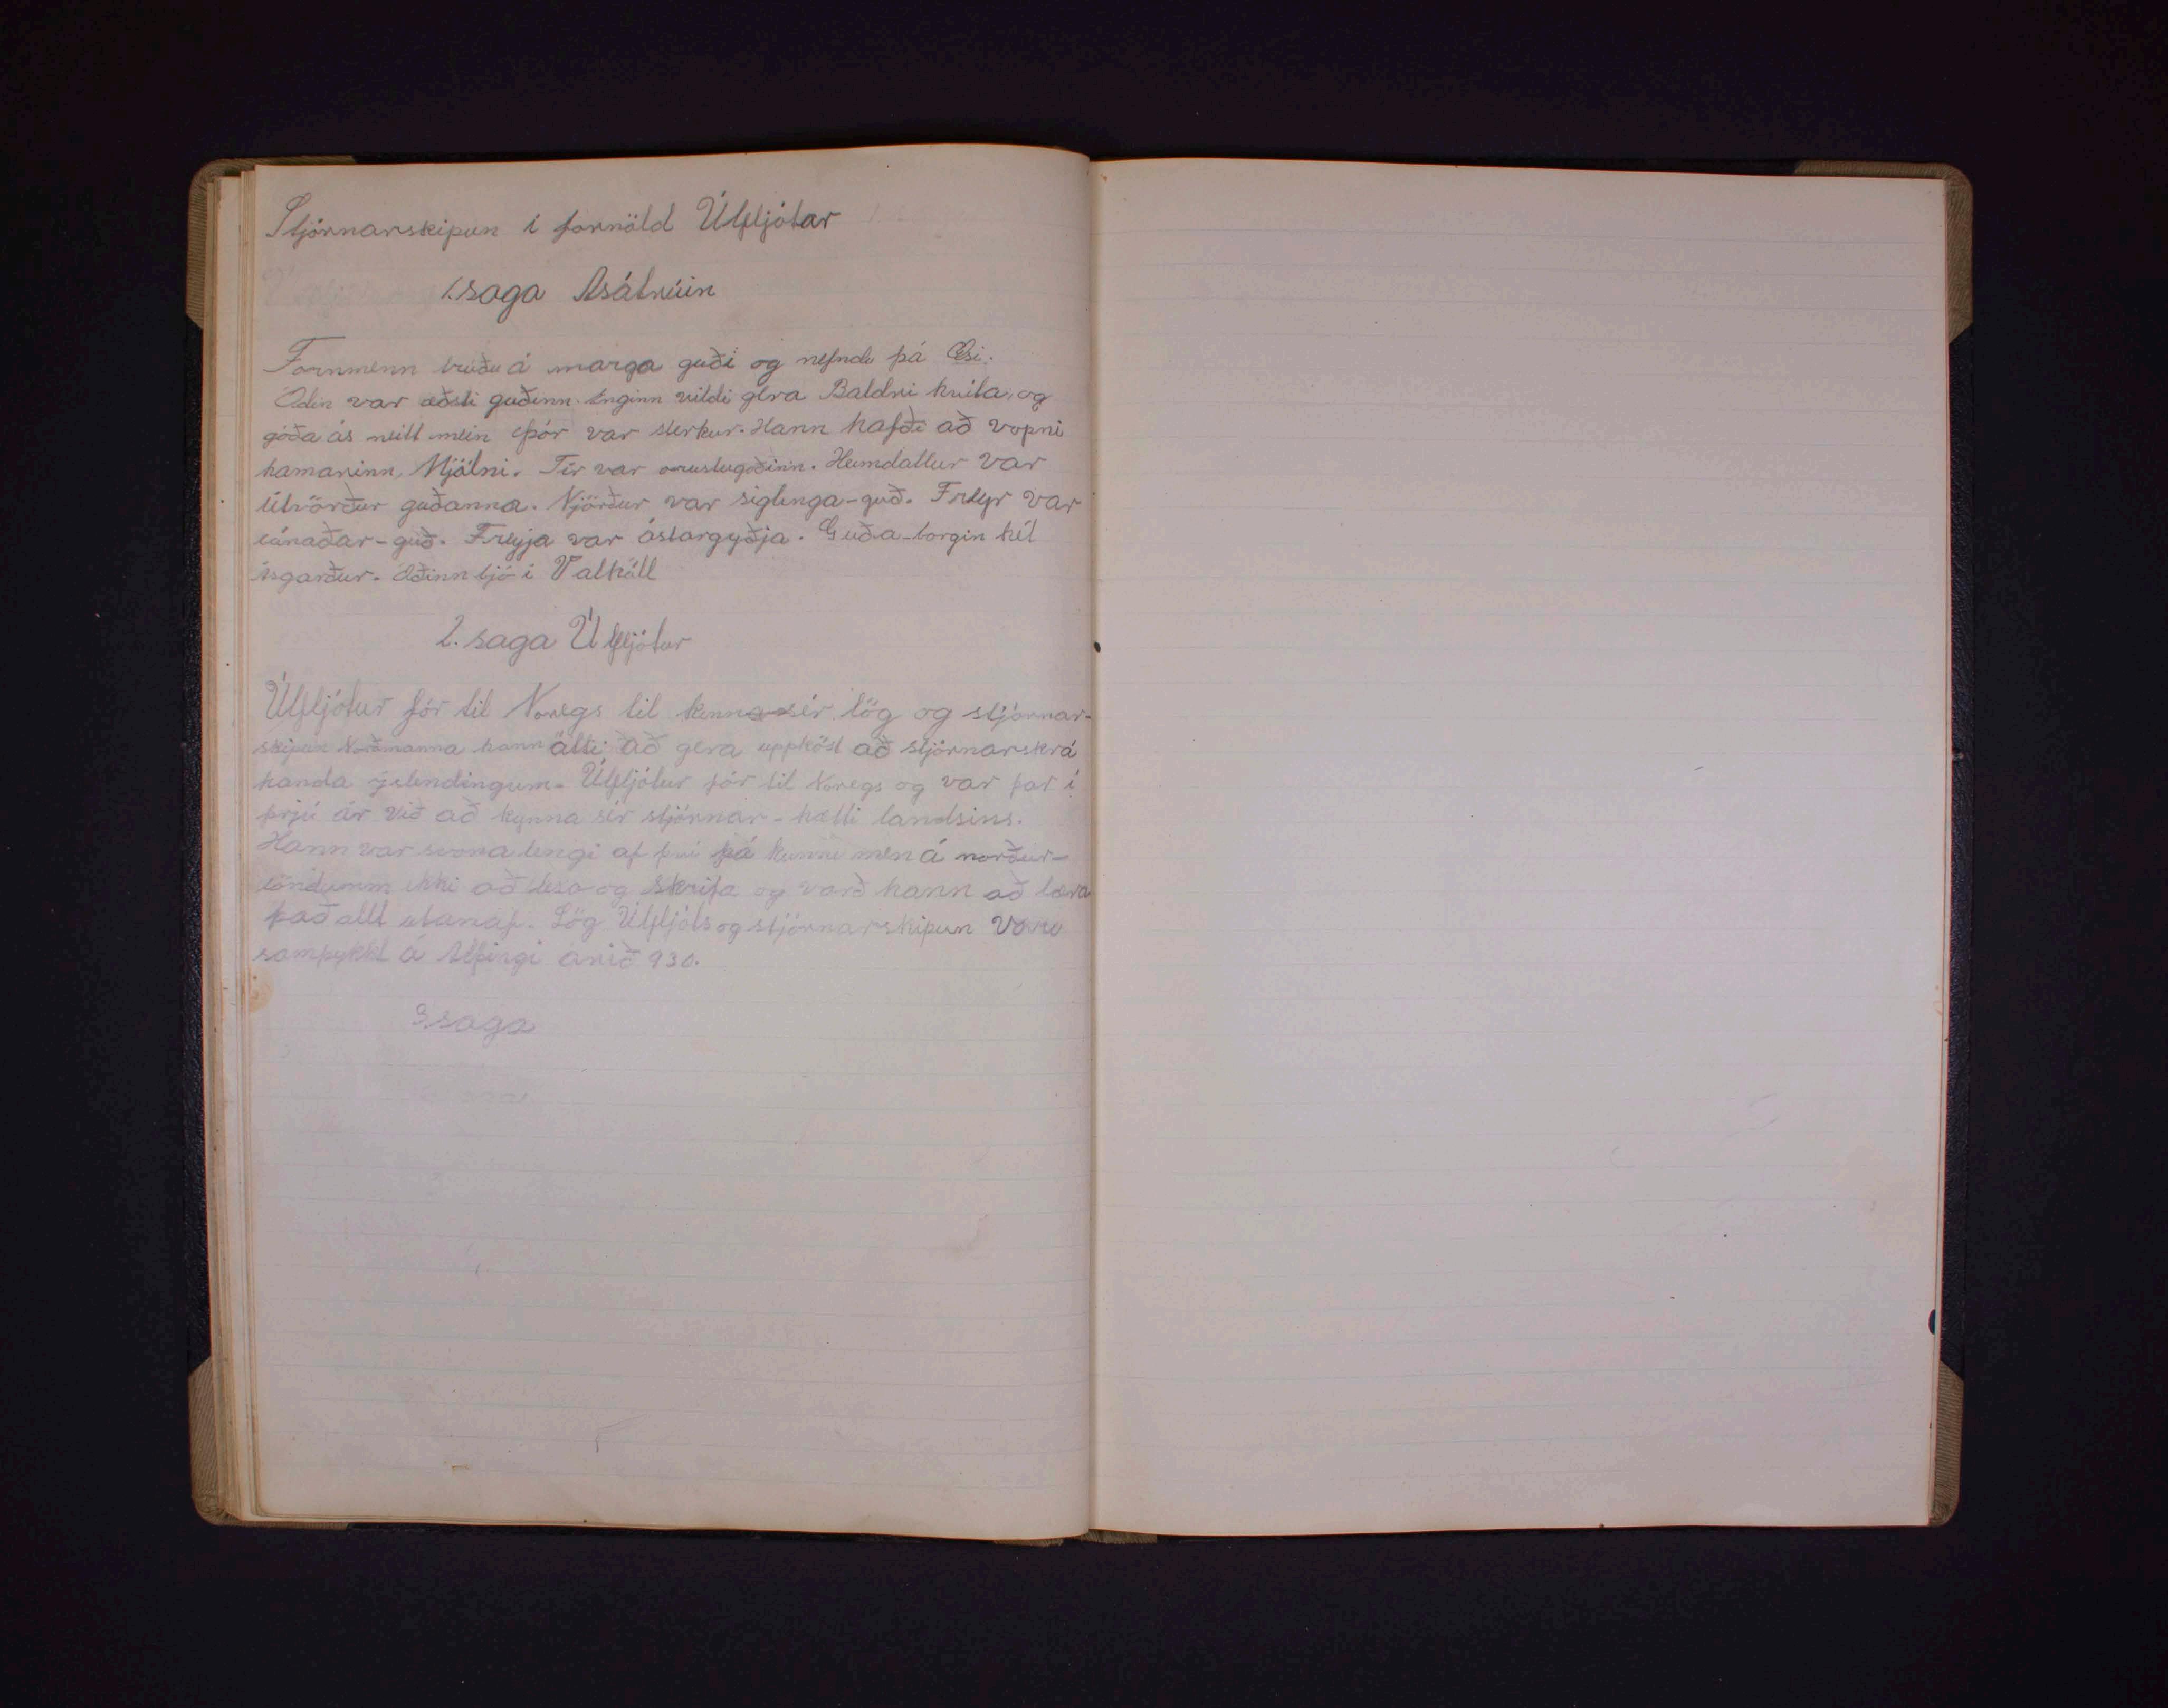 Stjórnarskipun í fornöld Úlfljótar
1. saga Asátrúin
Fornmenn trúðu á marga guði og nefndu þá Æsi.
Óðin var æðsti guðinn. Enginn vildi gera Baldri hvíta, og
góða ás neitt mein Þór var sterkur. Hann hafði að vopni
hamarinn, Mjölni. Tír var orustuguðinn. Heimdallur var
útvörður guðanna. Njörður var siglinga-guð. Freyr var
ánaðar-guð. Freyja var ástargyðja. Guða-borgin hét
Ásgarður. Óðinn bjó í Valhöll
2. saga Úlfljótur
Úlfljótur fór til Noregs til kenna sér lög og stjórnar-
skipun Norðmanna hann átti að gera uppköst að stjórnarskrá
handa Íslendingum. Úlfljótur fór til Noregs og var þar í
þrjú ár við að kynna sér stjórnar-hætti landsins.
Hann var svona lengi af því þá kunnu men á norður-
löndumm ekki að lesa og skrifa og varð hann að læra
það allt utanaf. Lög Úlfljóts og stjórnarskipun voru
samþykkt á Alþingi árið 930.
3. saga